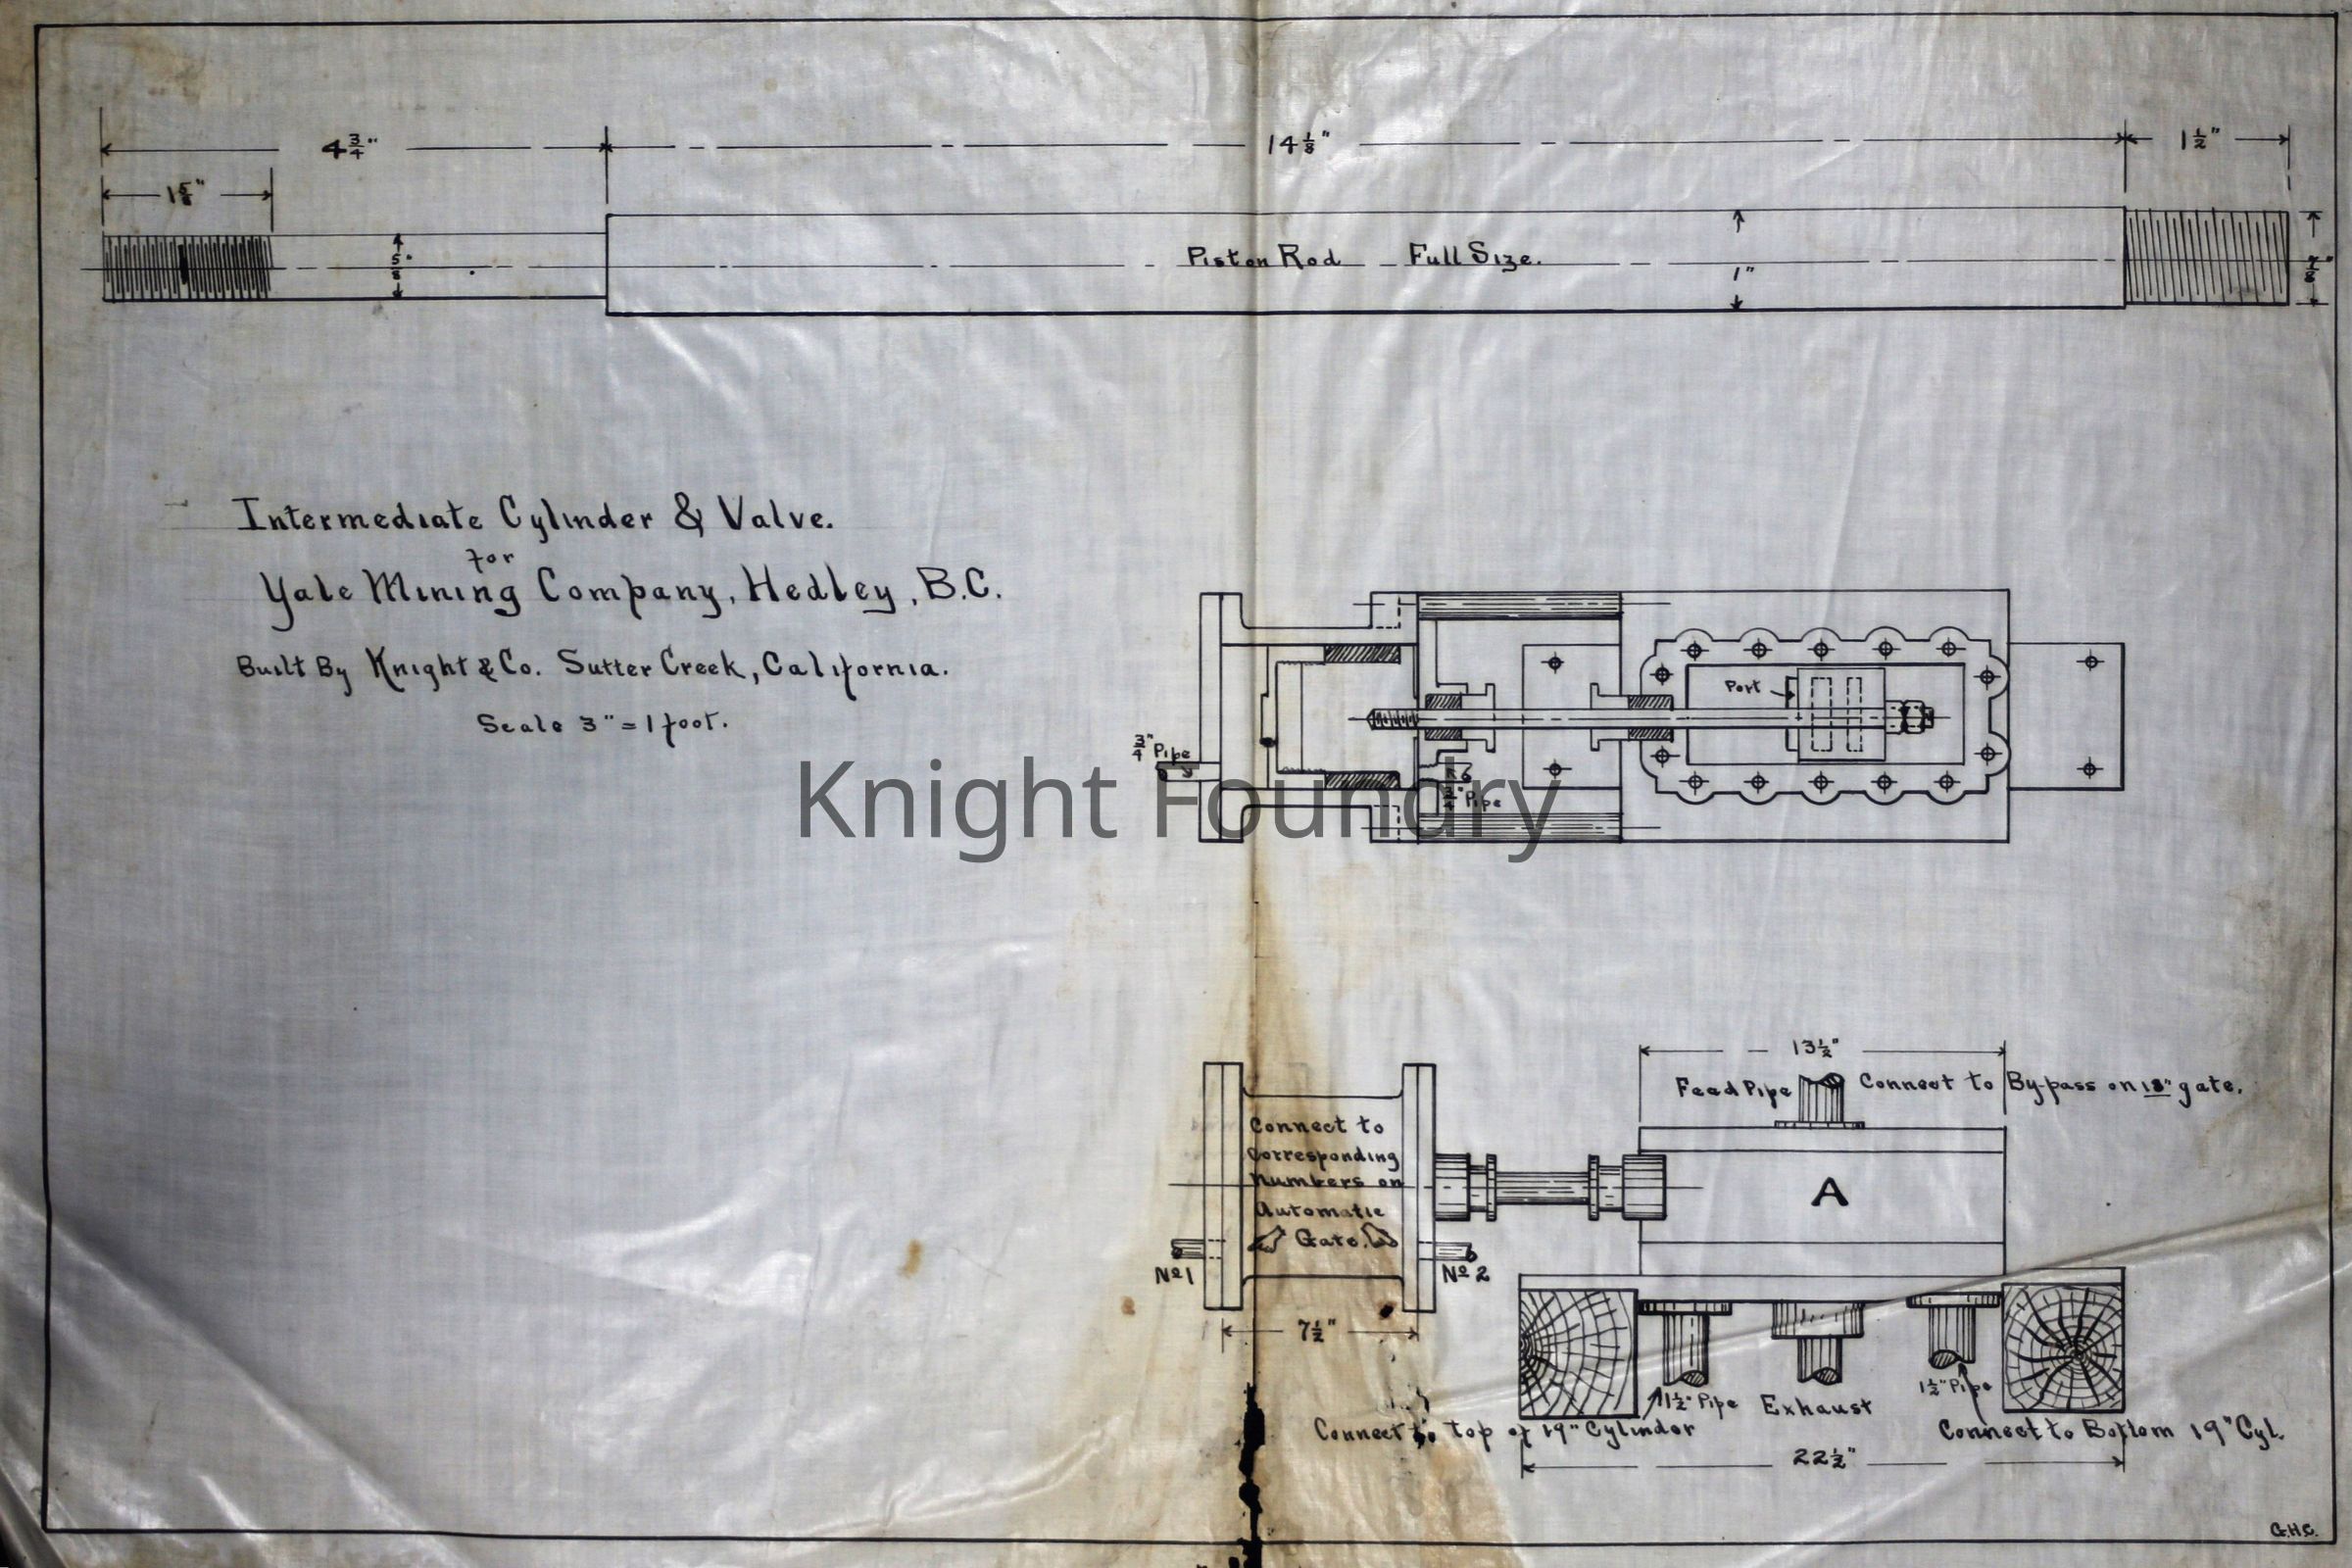 4 3/4"
14 1/8"
1 1/2"
1 5/8"
5/8"
Piston Rod Full Size.
1"
7/8"
Intermediate Cylinder & Valve.
for
Yale Mining Company, Hedley, B.C.
Built By Knight & Co. Sutter Creek, California.
Scale 3" = 1 foot.
Port
3/4" Pipe
3/4" Pipe
Knight Foundry
13 1/2"
Feed Pipe Connect to By-pass on 18" gate.
Connect to
Corresponding
Numbers on
Automatic
Gate.
A
No 1
No 2
7 1/2"
1 1/2" Pipe
Exhaust
1 1/2" Pipe
Connect to top of 19" Cylinder
Connect to Bottom 19" Cyl.
22 1/2"
G.H.C.